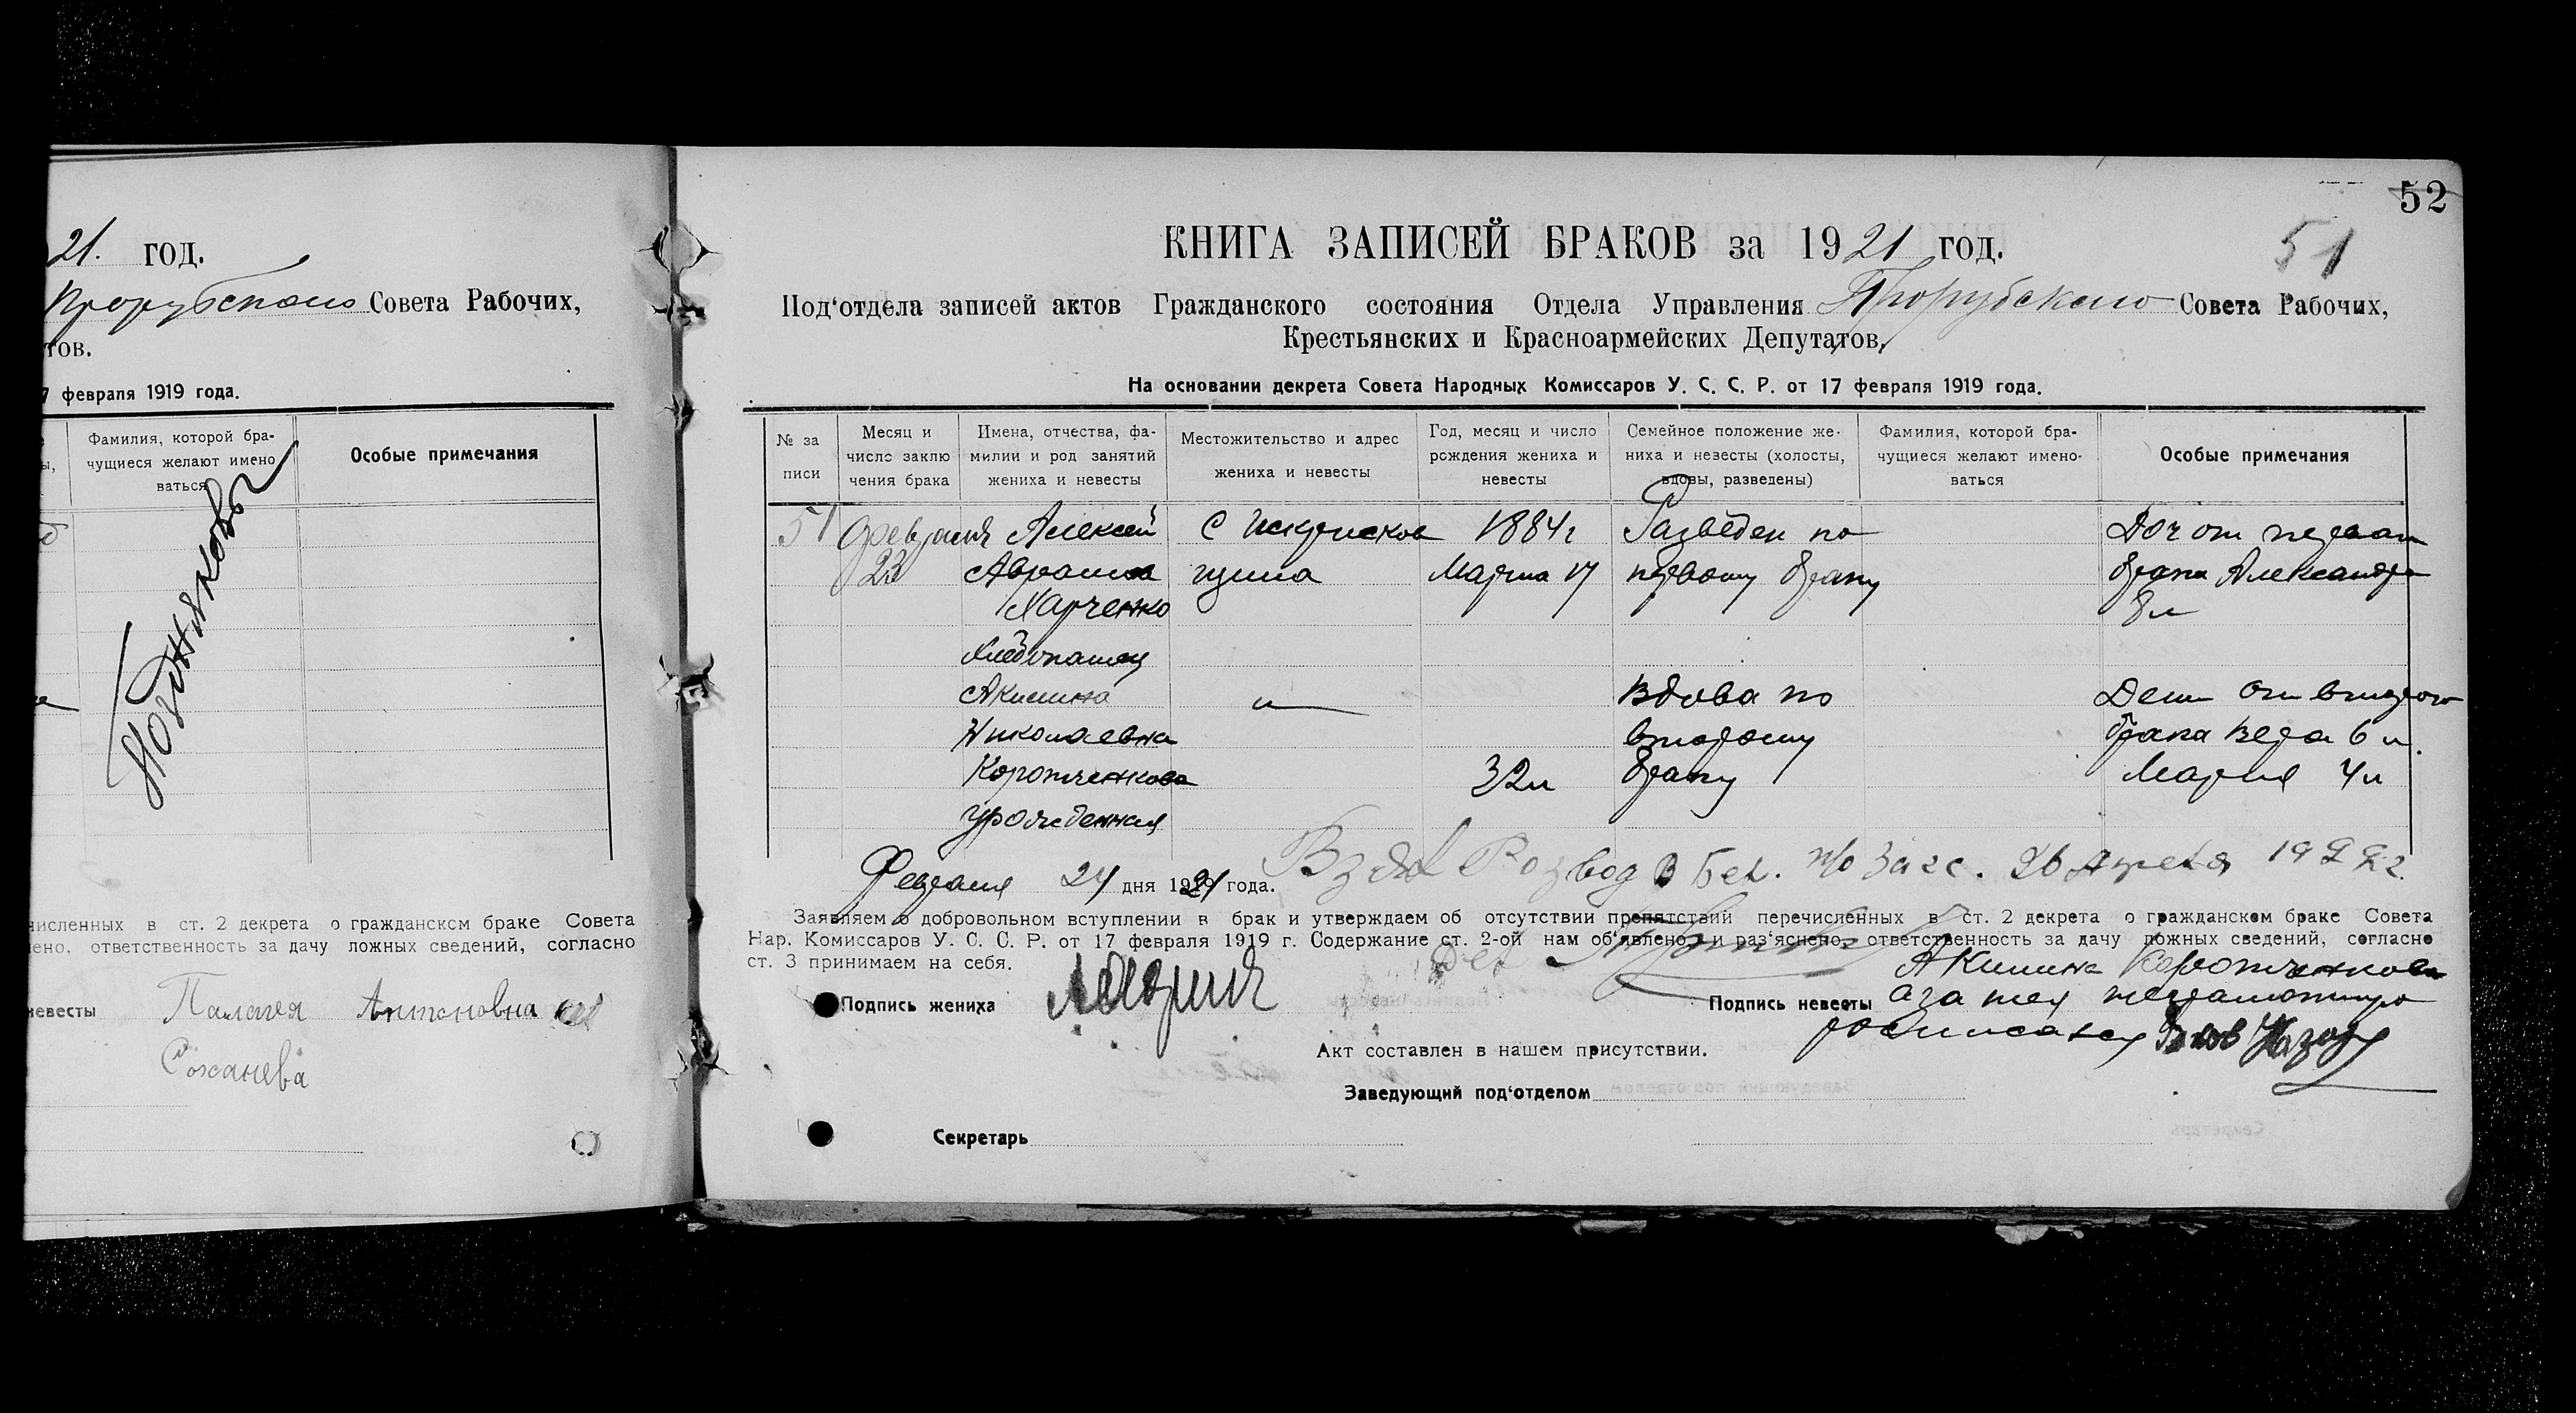 21. год.
Прорубского Совета Рабочих,
тов.
7 февраля 1919 года.
Фамилия, которой бра-
чущиеся желают имено
ваться
Особые примечания
Поздняковы
численных в ст. 2 декрета о гражданском браке Совета
ено, ответственность за дачу ложных сведений, согласно
невесты Палагея Антоновна
52
51
КНИГА ЗАПИСЕЙ БРАКОВ за 1921 год.
Под'отдела записей актов Гражданского состояния Отдела Управления Прорубского Совета Рабочих,
Крестьянских и Красноармейских Депутатов.
На основании декрета Совета Народных Комиссаров У. С. С. Р. от 17 февраля 1919 года.
№ за
писи
Месяц и
число заклю
чения брака
Имена, отчества, фа-
милии и род занятий
жениха и невесты
Местожительство и адрес
жениха и невесты
Год, месяц и число
рождения жениха и
невесты
Семейное положение же-
ниха и невесты (холосты,
вдовы, разведены)
Фамилия, которой бра-
чущиеся желают имено-
ваться
Особые примечания
51 февраля Алексей С 1884г Разведен по Доч от первого
23 Абрамов Марта 17 первому браку брака Александра
Харченко 8 л
Хлебопашец
Акилина Вдова по Дети от второго
Николаевна второму брака Вера 6 л.
Коротченкова 32л браку Мария 4 л
урожденная
Февраля 24 дня 1921 года. Взял Розвод в Бел. п/о Загс. 26 Апреля 1922 г.
Заявляем о добровольном вступлении в брак и утверждаем об отсутствии препятствий перечисленных в ст. 2 декрета о гражданском браке Совета
Нар. Комиссаров У. С. С. Р. от 17 февраля 1919 г. Содержание ст. 2-ой нам об'явлено и раз'яснено, ответственность за дачу ложных сведений, согласно
ст. 3 принимаем на себя.
Акилина Коротченкова
Подпись жениха
Подпись невесты а за нея неграмотную
росписался
Акт составлен в нашем присутствии.
Заведующий под'отделом
Секретарь